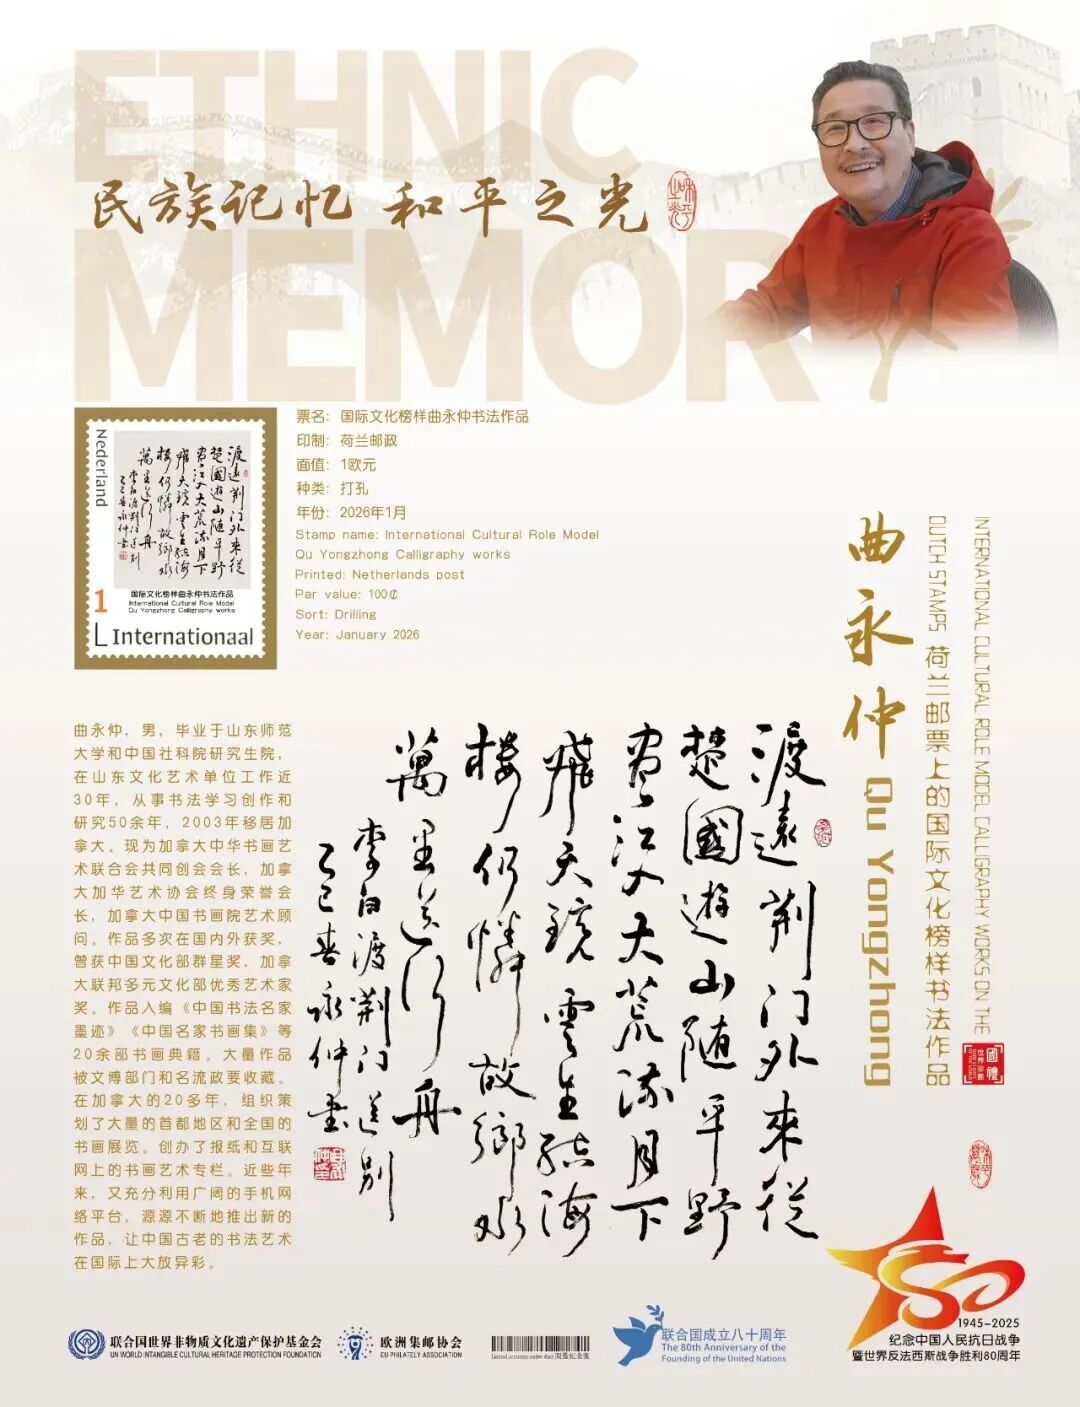 ETHNIC
MEMORY
民族记忆 和平之光
票名：国际文化榜样曲永仲书法作品
印制：荷兰邮政
面值：1欧元
种类：打孔
年份：2026年1月
Stamp name: International Cultural Role Model
Qu Yongzhong Calligraphy works
Printed: Netherlands post
Par value: 100₵
Sort: Drilling
Year: January 2026
Nederland
渡远荆门外来从
楚國遊山随平野
尽江入大荒流月下
飛天镜雲生结海
楼仍憐故鄉水
萬里送行舟
李白渡荆门送别
乙巳春永仲书
国际文化榜样曲永仲书法作品
International Cultural Role Model
Qu Yongzhong Calligraphy works
1
Internationaal
曲永仲 Qu Yongzhong
DUTCH STAMPS 荷兰邮票上的国际文化榜样书法作品
INTERNATIONAL CULTURAL ROLE MODEL CALLIGRAPHY WORKS ON THE
國禮
曲永仲，男，毕业于山东师范
大学和中国社科院研究生院，
在山东文化艺术单位工作近
30年，从事书法学习创作和
研究50余年，2003年移居加
拿大。现为加拿大中华书画艺
术联合会共同创会会长，加拿
大加华艺术协会终身荣誉会
长，加拿大中国书画院艺术顾
问。作品多次在国内外获奖，
曾获中国文化部群星奖，加拿
大联邦多元文化部优秀艺术家
奖。作品入编《中国书法名家
墨迹》《中国名家书画集》等
20余部书画典籍。大量作品
被文博部门和名流政要收藏。
在加拿大的20多年，组织策
划了大量的首都地区和全国的
书画展览。创办了报纸和互联
网上的书画艺术专栏。近些年
来，又充分利用广阔的手机网
络平台，源源不断地推出新的
作品，让中国古老的书法艺术
在国际上大放异彩。
渡远荆门外来从
楚國遊山随平野
尽江入大荒流月下
飛天镜雲生结海
楼仍憐故鄉水
萬里送行舟
李白渡荆门送别
乙巳春永仲书
联合国世界非物质文化遗产保护基金会
UN WORLD INTANGIBLE CULTURAL HERITAGE PROTECTION FOUNDATION
欧洲集邮协会
EU PHILATELY ASSOCIATION
联合国成立八十周年
The 80th Anniversary of the
Founding of the United Nations
80
1945-2025
纪念中国人民抗日战争
暨世界反法西斯战争胜利80周年